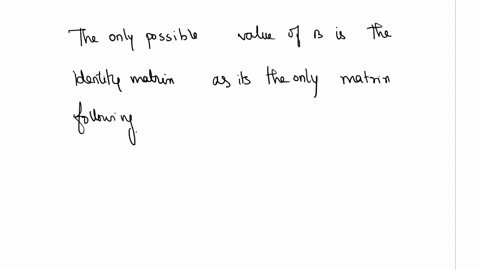 The only possible value of B is the
Identity matrix as its the only matrix
following.